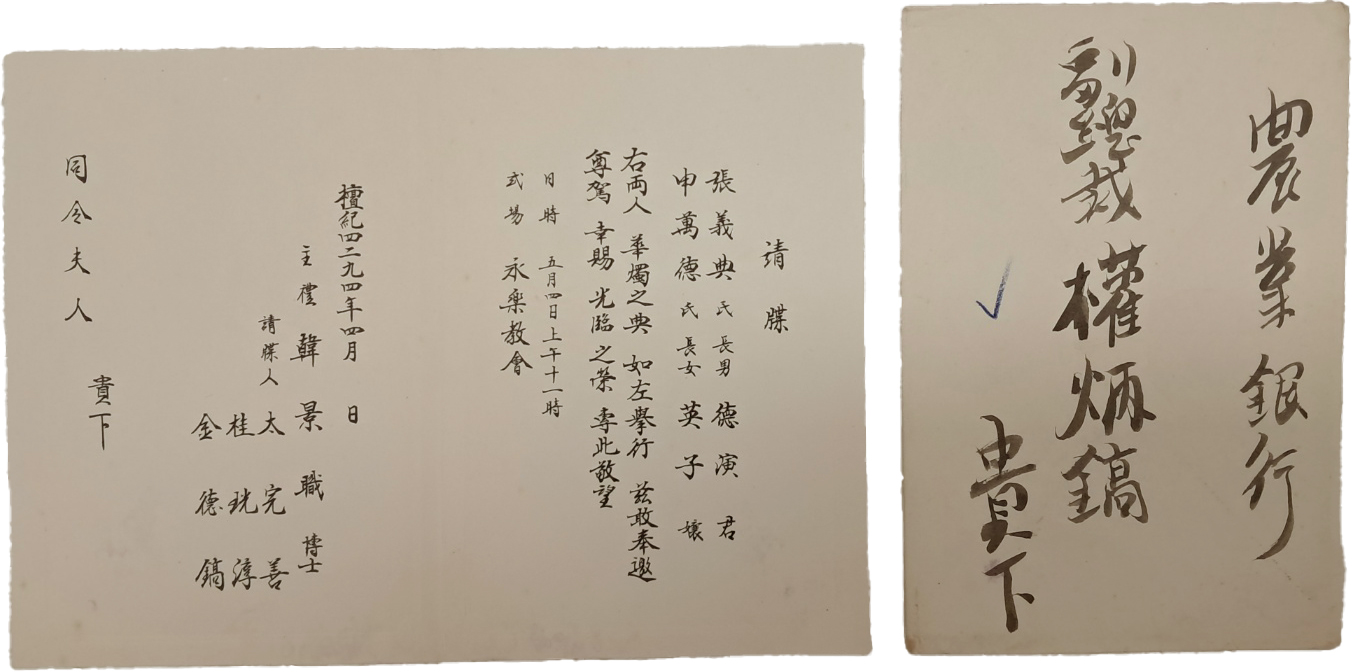 請牒
張義典氏長男德演君
申萬德氏長女英子孃
右両人 華燭之典 如左擧行 玆敢奉邀
尊駕 幸賜 光臨之榮 專此敬望
日時 五月四日上午十一時
式場 永樂敎會
檀紀四二九四年四月 日
主禮 韓景職 博士
請牒人 太完善
桂珖淳
金德鎬
同令夫人 貴下
農業銀行
副總裁 權炳鎬
貴下